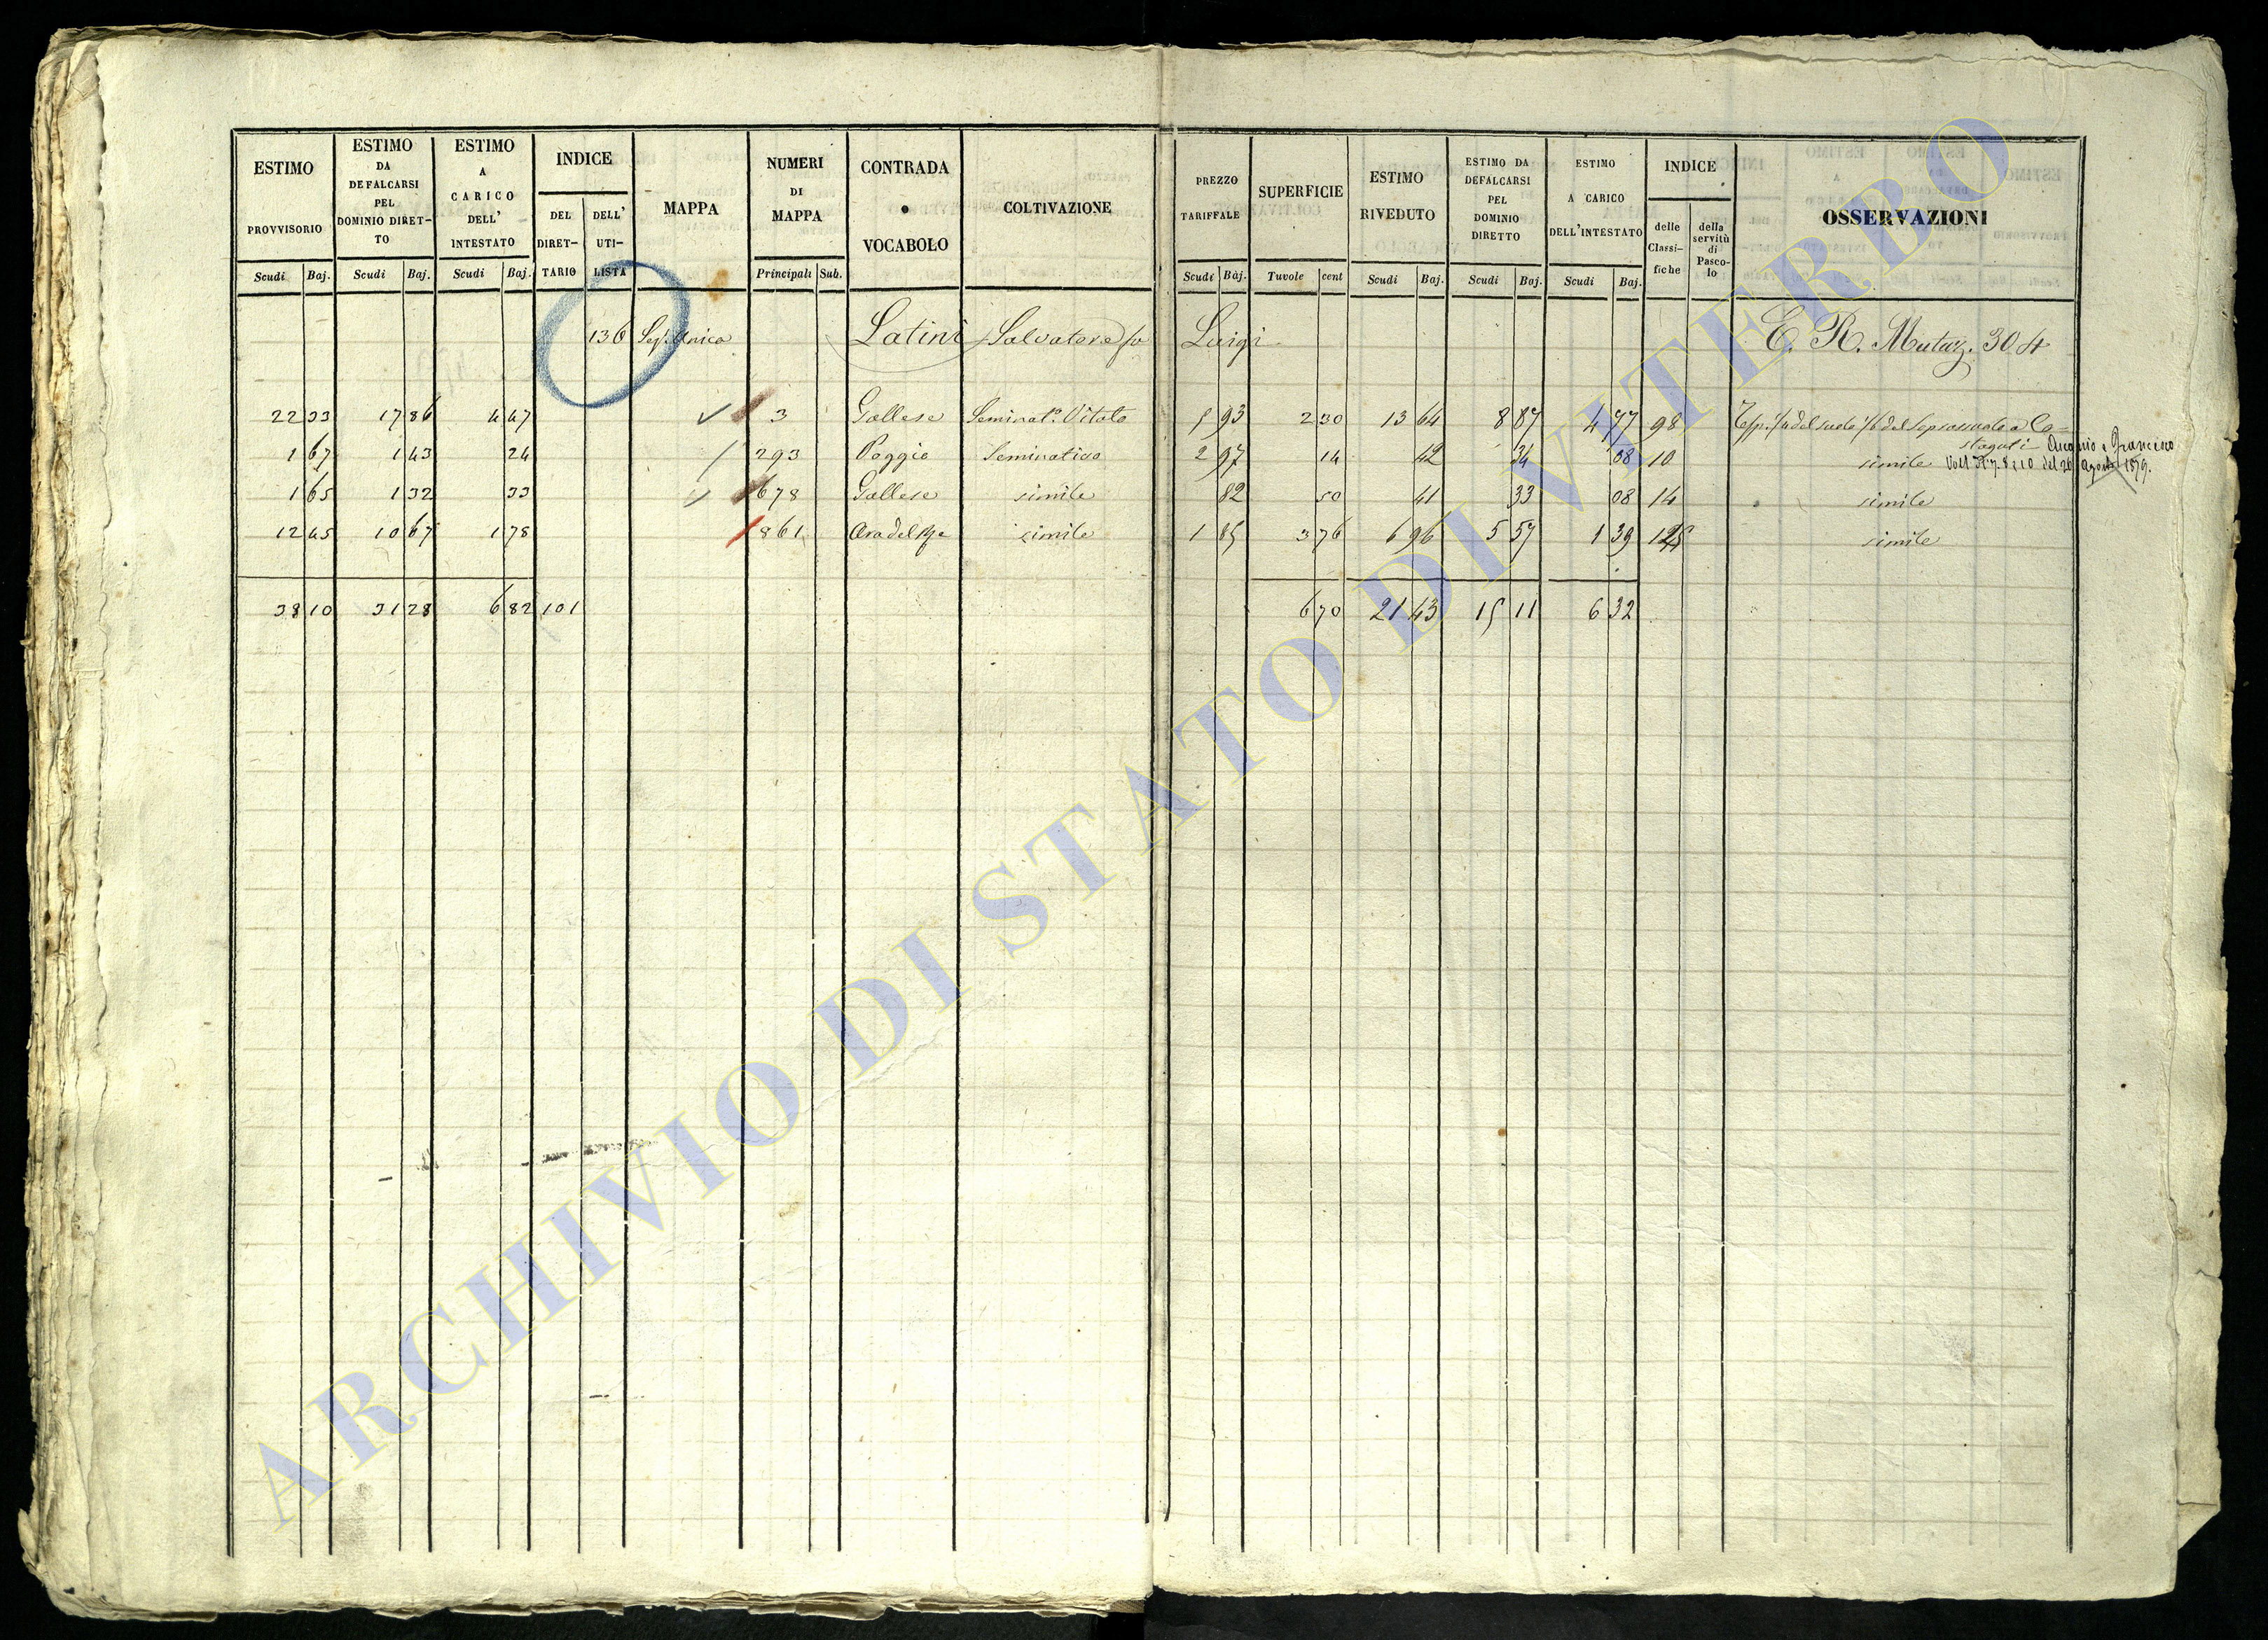 ESTIMO PROVVISORIO Scudi Baj.
ESTIMO DA DEFALCARSI PEL DOMINIO DIRET-TO Scudi Baj.
ESTIMO A CARICO DELL' INTESTATO Scudi Baj.
INDICE DEL DIRET-TARIO DELL' UTI-LISTA
MAPPA
NUMERI DI MAPPA Principali Sub.
CONTRADA o VOCABOLO
COLTIVAZIONE
PREZZO TARIFFALE Scudi Baj.
SUPERFICIE Tavole cent
ESTIMO RIVEDUTO Scudi Baj.
ESTIMO DA DEFALCARSI PEL DOMINIO DIRETTO Scudi Baj.
ESTIMO A CARICO DELL'INTESTATO Scudi Baj.
INDICE delle Classi-fiche della servitù di Pasco-lo
OSSERVAZIONI
136 Sez. Unica Latini Salvatore fu Luigi E. R. Mutaz. 304
22 33 17 86 4 47 3 Gallese Seminato Vitato 5 93 2 30 13 64 8 87 4 77 98
1 67 1 43 24 293 Poggio Seminativo 2 97 14 42 34 08 10 simile
1 65 1 32 33 678 Gallese simile 82 50 41 33 08 14 simile
12 45 10 67 1 78 861 simile 1 85 3 76 6 96 5 57 1 39 simile
38 10 31 28 6 82 101 6 70 21 43 15 11 6 32
ARCHIVIO DI STATO DI VITERBO